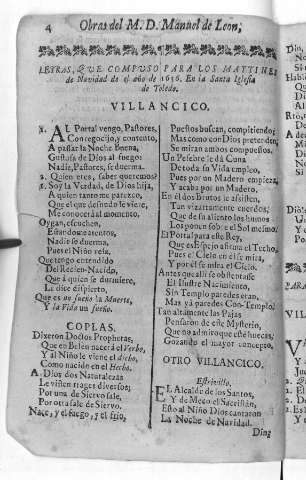 4 Obras del M. D. Manuel de Leon,
LETRAS, QUE COMPUSO PARA LOS MAYTINES
de Navidad de el año de 1656. En la Santa Iglesia
de Toledo.
VILLANCICO.
1. AL Portal vengo, Pastores,
Con regocijo, y contento,
A passar la Noche Buena,
Gustosa de Dios al fuego:
Nadie, Pastores, se duerma.
2. Quien eres, saber queremos?
1. Soy la Verdad, de Dios hija,
A quien tanto me parezco,
Que el que defiende lo viene,
Me conocerá al momento.
Oygan, escuchen,
Estando me atentos,
Nadie se duerma,
Pues el Niño vela.
Que tengo entendido
Del Recien-Nacido,
Que à quien se durmiere,
Le dize despierto,
Que es un sueño la Muerte,
Y la Vida un sueño.
COPLAS.
Dixeron Doctos Prophetas,
Que en Belèn nacerà el Verbo,
Y al Niño le viene el dicho,
Como nacido en el Hecho.
A Dios dos Naturalezas
Le visten trages diversos;
Por una de Siervo sale,
Por otra sale de Siervo.
Nace, y el fuego, y el frio,
Puestos buscan, compitiendo;
Mas como con Dios pretenden,
Se miran ambos compuestos.
Un Pesebre le dà Cuna
De toda su Vida empleo,
Pues por un Madero empieza,
Y acaba por un Madero.
En èl dos Brutos le assisten,
Tan vizarramente cuerdos,
Que de su aliento los humos
Los ponen sobre el Sol mesmo.
El Portal para este Rey,
Que es Espejo assiste al Techo,
Pues el Cielo en èl se mira,
Y por èl se mira el Cielo.
Antes que alli se ostentasse
El Ilustre Nacimiento,
Sin Templo paredes eran,
Mas yà paredes Con-Templo.
Tan altamente las Pajas
Pensaron de este Mysterio,
Que no admiro que estè huecas,
Gozando el mayor concepto.
OTRO VILLANCICO.
Estrivillo.
EL Alcalde de los Santos,
Y de Meco el Sacristàn,
Esto al Niño Dios cantaron
La Noche de Navidad.
Ding